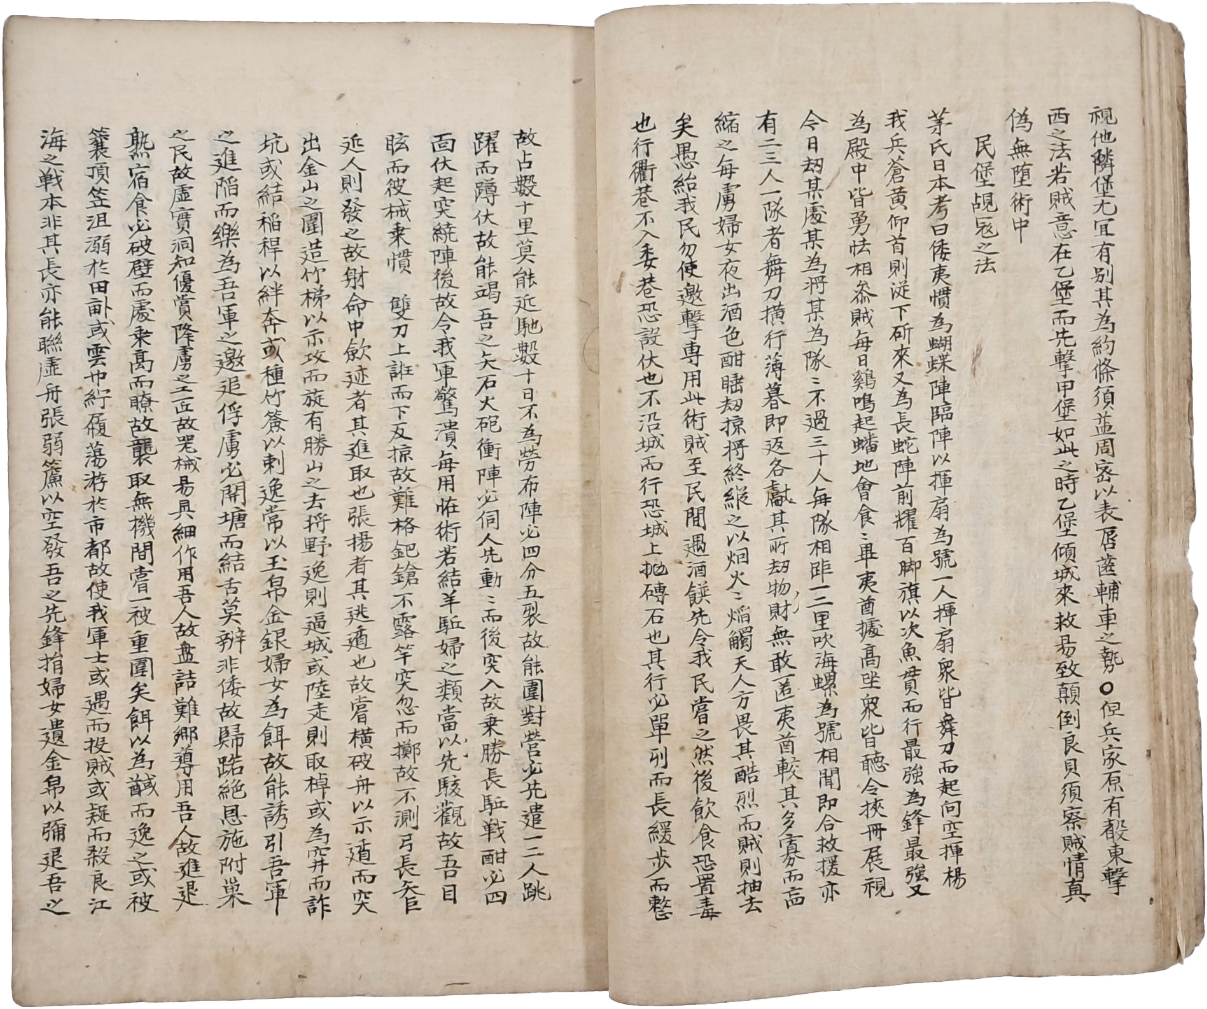 視他隣堡尤宜有别其為約條須益周宻以表唇齒輔車之勢○但兵家原有聲東擊
西之法若賊意在乙堡而先擊甲堡如此之時乙堡傾城來救易致顛倒良貝須察賊情真
偽無堕術中
民堡覘冦之法
茅氏日本考曰倭夷慣為蝴蝶陣臨陣以揮扇為號一人揮扇衆皆舞刀而起向空揮楊
我兵蒼黄仰首則從下斫來又為長蛇陣前耀百脚旗以次魚貫而行最強為鋒最強又
為殿中皆勇怯相叅賊每日鷄鳴起蟠地會食〻畢夷酋據高坐衆皆聽令挾冊展視
今日刼某處某為将某為隊〻不過三十人每隊相距一二里吹海螺為號相聞即合救援亦
有二三人一隊者舞刀横行薄暮即返各獻其所刼物財無敢匿夷酋較其多寡而高
縮之每虜婦女夜出酒色酣睡刼掠将終縱之以烟火〻焰觸天人方畏其酷烈而賊則抽去
矣愚紿我民勿使邀擊専用此術賊至民間遇酒饌先令我民嘗之然後飲食恐置毒
也行衢巷不入委巷恐設伏也不沿城而行恐城上抛磚石也其行必單列而長緩步而整
故占數十里莫能近馳數十日不為勞布陣必四分五裂故能圍對營必先遣一二人跳
躍而蹲伏故能竭吾之矢石火砲衝陣必伺人先動〻而後突入故乗勝長驅戰酣必四
面伏起突繞陣後故令我軍驚潰每用恠術若結羊驅婦之類當以先駭觀故吾目
眩而彼械乗慣 雙刀上誑而下反掠故難格鈀鎗不露竿突忽而擲故不測弓長矢巨
近人則發之故射命中歛迹者其進取也張揚者其逃遁也故嘗横破舟以示遁而突
出金山之圍造竹梯以示攻而旋有勝山之去将野逸則逼城或陸走則取棹或為穽而詐
坑或結稲稈以絆奔或種竹簽以刺逸常以玉帛金銀婦女為餌故能誘引吾軍
之進䧟而樂為吾軍之邀追俘虜必開塘而結舌莫辨非倭故歸路絶恩施附巢
之民故虚實洞知優賞降虜之工故罟械易具細作用吾人故盘詰難鄉導用吾人故進退
熟宿食必破壁而處乗髙而瞭故襲取無機間嘗一被重圍矣餌以為馘而逸之或被
簑頂笠沮溺於田畝或雲巾紵履蕩游於市都故使我軍士或遇而投賊或疑而殺良江
海之戰本非其長亦能聯虚舟張弱簾以空發吾之先鋒捎婦女遺金帛以彌退吾之